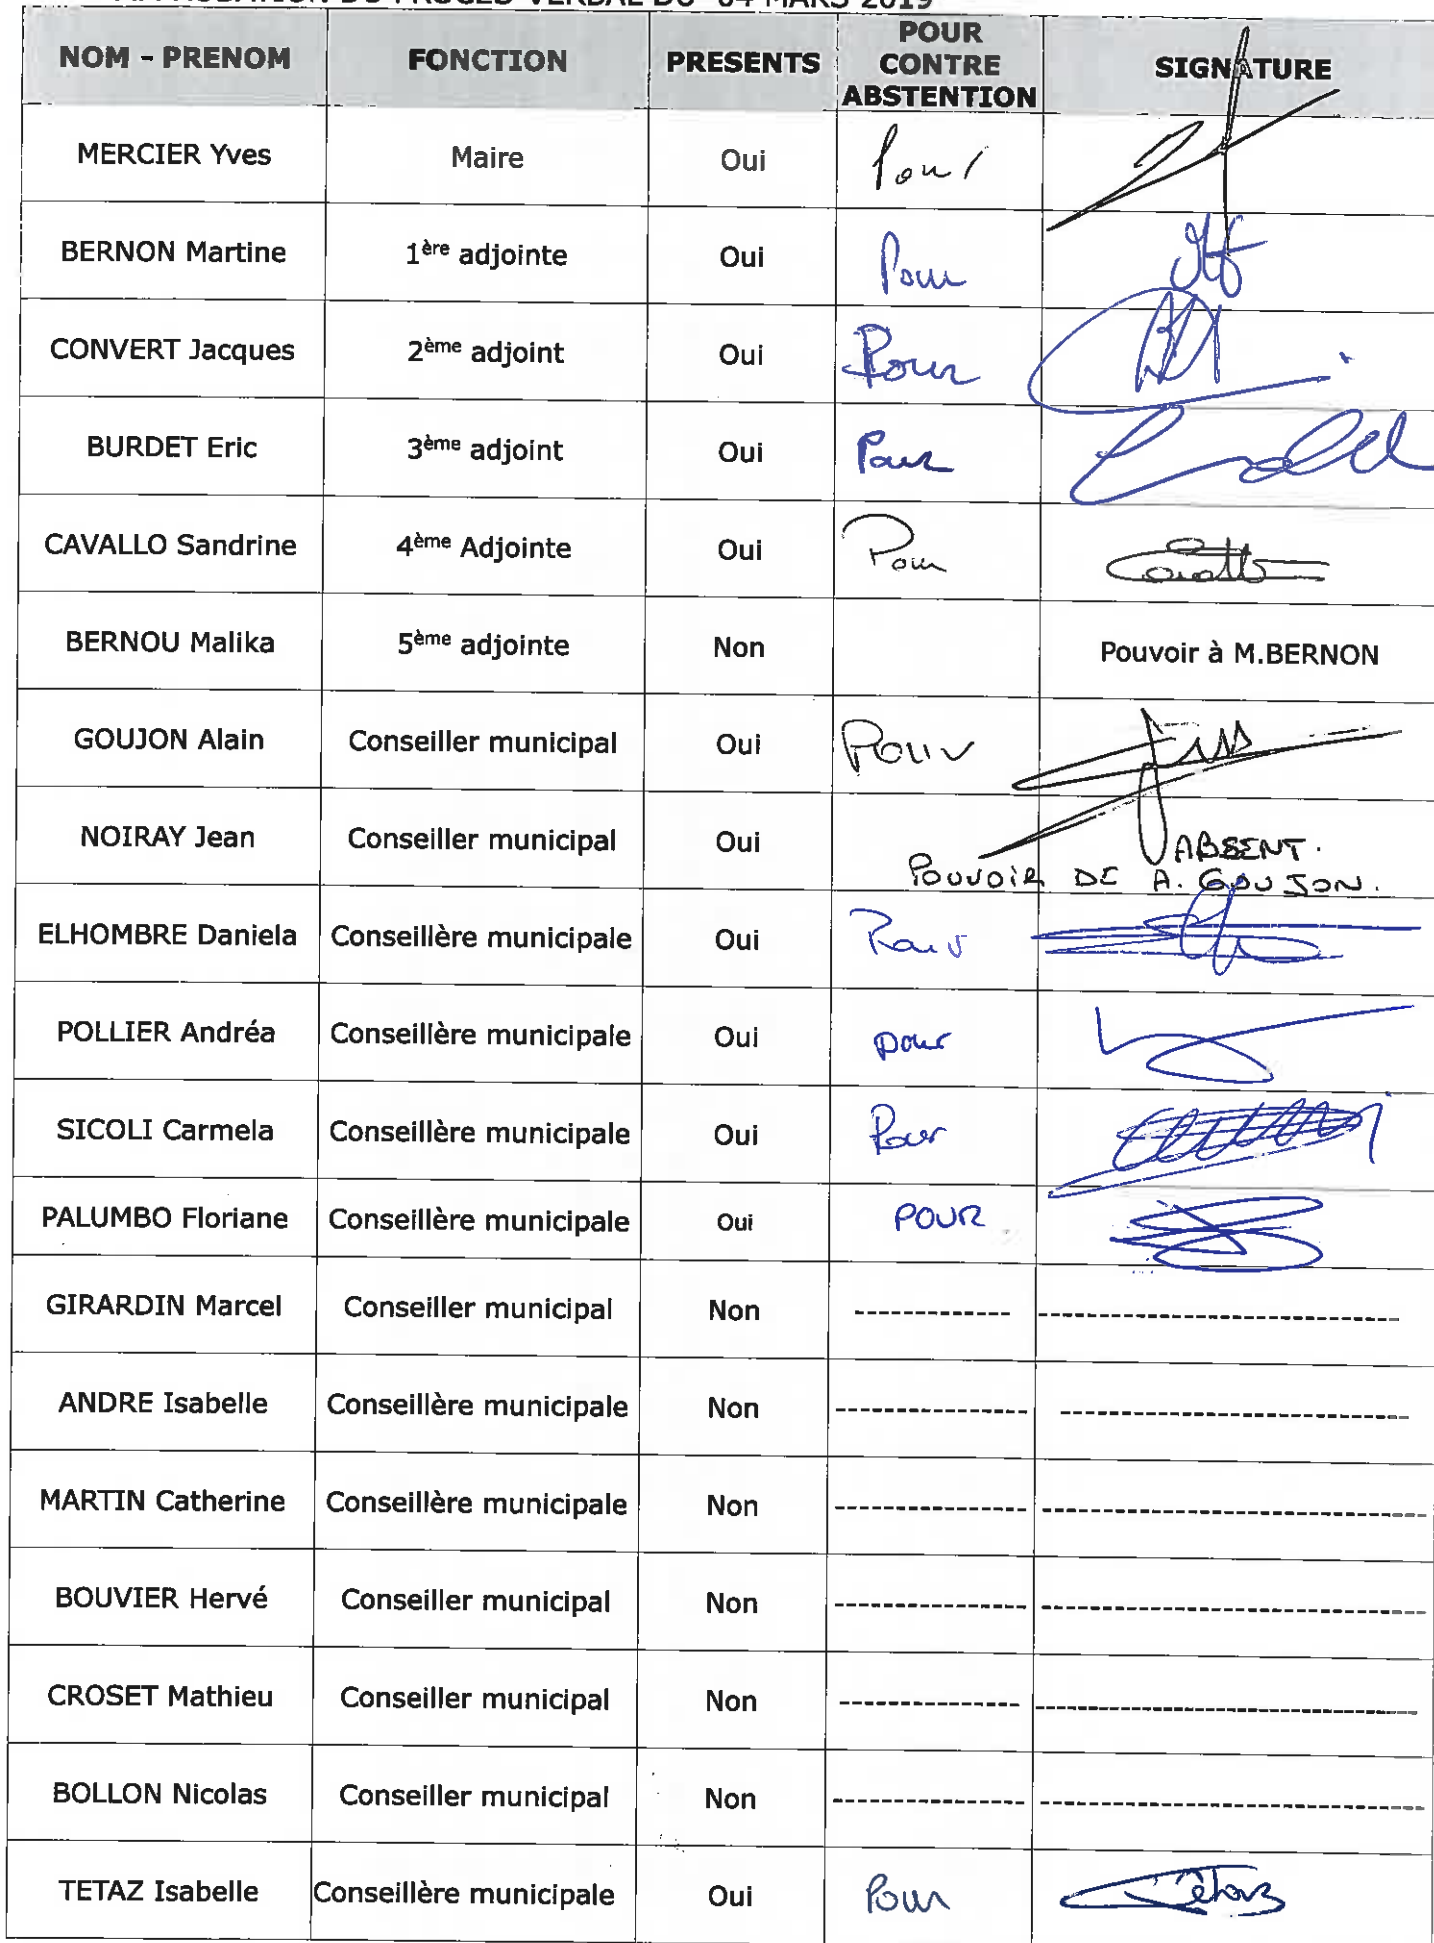 APPROBATION DU PROCES-VERBAL DU 04 MARS 2019
NOM - PRENOM FONCTION PRESENTS POUR CONTRE ABSTENTION SIGNATURE
MERCIER Yves Maire Oui Pour
BERNON Martine 1ère adjointe Oui Pour
CONVERT Jacques 2ème adjoint Oui Pour
BURDET Eric 3ème adjoint Oui Pour
CAVALLO Sandrine 4ème Adjointe Oui Pour
BERNOU Malika 5ème adjointe Non Pouvoir à M.BERNON
GOUJON Alain Conseiller municipal Oui Pour
NOIRAY Jean Conseiller municipal Oui ABSENT.
POUVOIR DE A. GOUJON.
ELHOMBRE Daniela Conseillère municipale Oui Pour
POLLIER Andréa Conseillère municipale Oui pour
SICOLI Carmela Conseillère municipale Oui Pour
PALUMBO Floriane Conseillère municipale Oui POUR
GIRARDIN Marcel Conseiller municipal Non
ANDRE Isabelle Conseillère municipale Non
MARTIN Catherine Conseillère municipale Non
BOUVIER Hervé Conseiller municipal Non
CROSET Mathieu Conseiller municipal Non
BOLLON Nicolas Conseiller municipal Non
TETAZ Isabelle Conseillère municipale Oui Pour